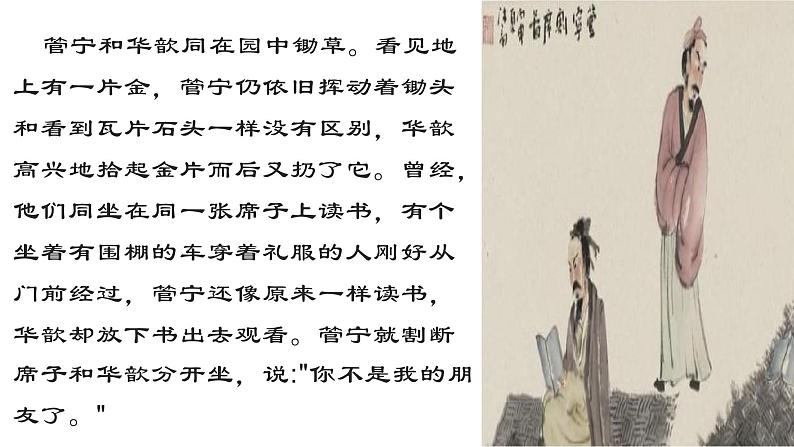 菅宁和华歆同在园中锄草。看见地
上有一片金，菅宁仍依旧挥动着锄头
和看到瓦片石头一样没有区别，华歆
高兴地拾起金片而后又扔了它。曾经，
他们同坐在同一张席子上读书，有个
坐着有围棚的车穿着礼服的人刚好从
门前经过，菅宁还像原来一样读书，
华歆却放下书出去观看。菅宁就割断
席子和华歆分开坐，说:"你不是我的朋
友了。"